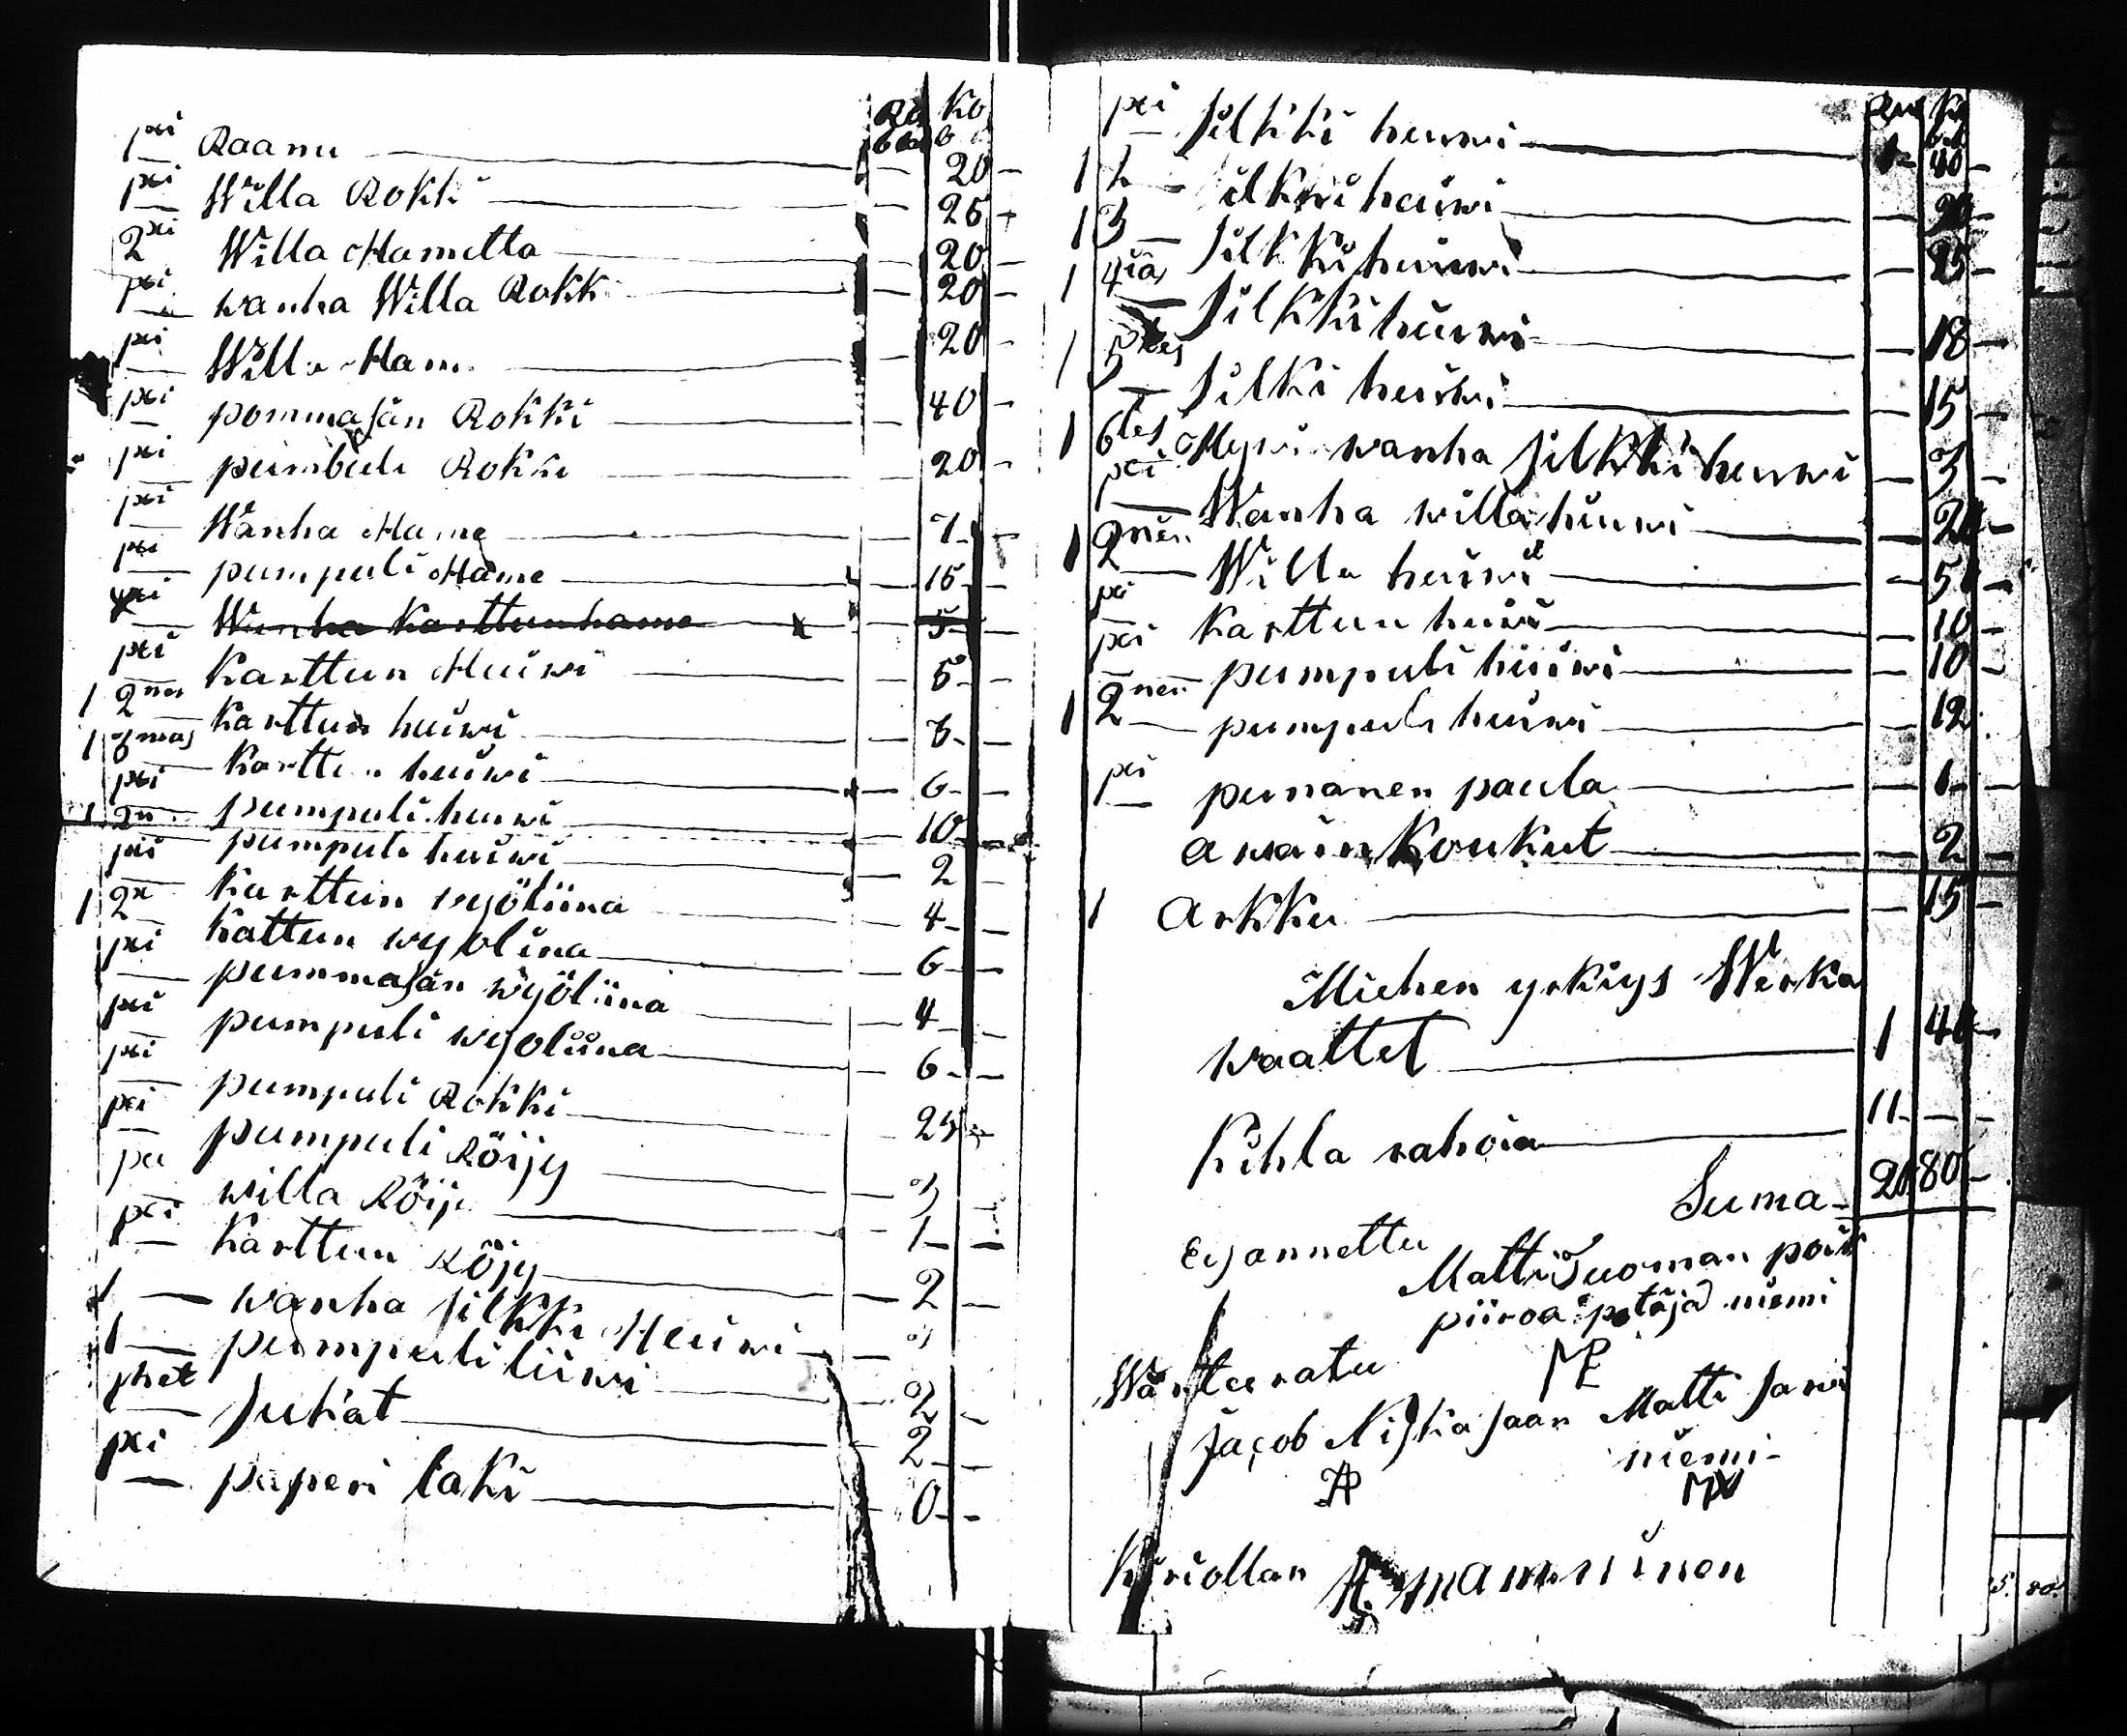 Ru Ko
pxi Raanu 20
pxi Willa Rokki 25
2 pxi Willa Hametta 20
pxi wanha Willa Rokk 20
pxi Willa Ham 20
pxi pommasän Rokki 40
pxi pumbuli Rokki 20
pxi Wanha Hame 7
pxi pumpuli Hame 15
pxi Wanha Karttunhame x 5
pxi Karttun Huiwi 5
1 2nen Karttun huiwi 3
1 3mas Karttun huiwi 6
pxi pumpuli huiwi 10
1 2n pumpuli huiwi 2
pxi Karttun wyöliina 4
1 2n Kattun wyolina 6
pxi pummasän wyöliina 4
pxi pumpuli wyoliina 6
pxi pumpuli Rokki 25
pxi pumpuli Röijy 3
pxi willa Röijy 1
pxi Karttun Röjy 2
1 wanha silkki Heuwi 3
1 pumpuli liiwi 2
phet sukat 2
pxi paperi laki 0
pxi silkki heuwi 40
1 2 silkki heiwi 20
1 3 silkki huiwi 25
1 4iäs silkki huiwi 18
1 5des silki heiwi 15
1 6des Hywi wanha silkki heuwi 3
pxi Wanha willa huiwi 20
1 2nen Willa heiwi 50
pxi Karttun huiwi 10
pxi pumpuli huiwi 10
1 2nen pumpuli huiwi 12
pxi punanen paula 1
awain Koukut 2
1 Arkku 15
Miehen yrkiys Werka
waattet 1 40
Kihla rahoia 11
Suma 20 80
Esannettu
Matti Tuoman poik
piiroa petäjä niemi
MP
Wärteeratu
Jacob Niskasaar Matti Jarwi
niemi
Kiriollan A. manninen